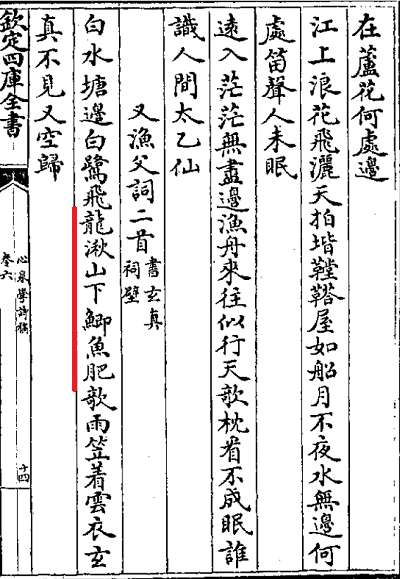 在蘆花何處邊
江上浪花飛灑天拍堦鞺鞳屋如船月不夜水無邊何
處笛聲人未眠
遠入茫茫無盡邊漁舟來往似行天歌枕看不成眠誰
識人間太乙仙
又漁父詞二首書玄真祠壁
白水塘邊白鷺飛龍湫山下鯽魚肥歌雨笠着雲衣玄
真不見又空歸
欽定四庫全書
心泉學詩稿
卷六
十四